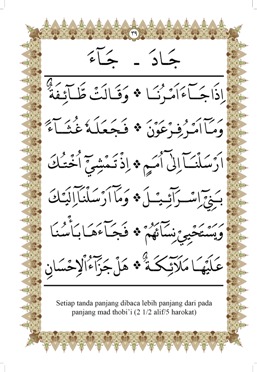 ٣٩
جَادَ - جَآءَ
اِذَا جَآءَ اَمْرُنَا ❖ وَقَالَتْ طَآئِفَةٌ
وَمَآ اَمْرُ فِرْعَوْنَ ❖ فَجَعَلَهُ غُثَآءً
اَرْسَلْنَآ اِلٰٓى اُمَمٍ ❖ اِذْ تَمْشِيْٓ اُخْتُكَ
بَنِيْٓ اِسْرَآئِيْلَ ❖ وَمَآ اَرْسَلْنَآ اِلَيْكَ
وَيَسْتَحْيِيْ نِسَآءَهُمْ ❖ فَجَآءَهَا بَأْسُنَا
عَلَيْهَا مَلَآئِكَةٌ ❖ هَلْ جَزَآءُ الْاِحْسَانِ
Setiap tanda panjang dibaca lebih panjang dari pada
panjang mad thobi'i (2 1/2 alif/5 harokat)